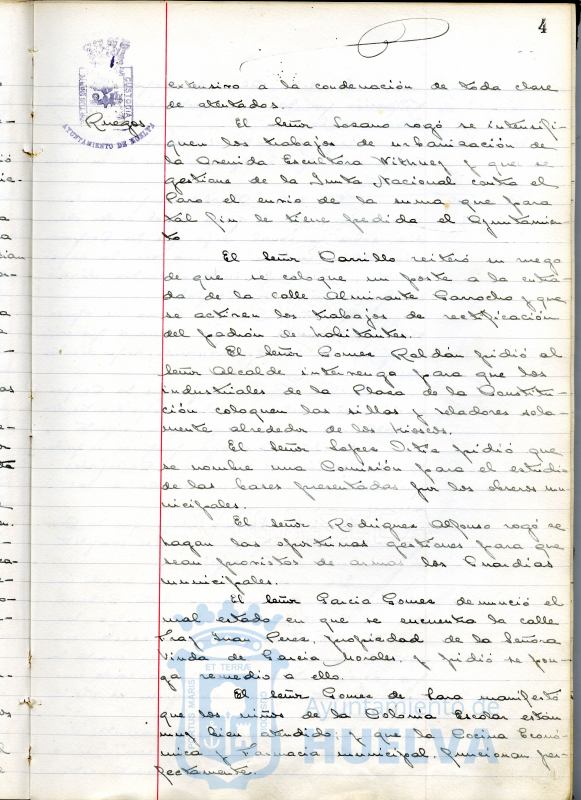 4
extensivo a la condenación de toda clase
de atentados.
Ruegos
El Señor Lozano rogó se intensifi-
quen los trabajos de urbanización de
la Avenida Escultora Withney y que se
gestione de la Junta Nacional contra el
Paro el envio de la suma que para
tal fin le tiene pedida el Ayuntamien-
to
El Señor Carrillo reiteró su ruego
de que se coloque un poste a la entra-
da de la calle Almirante Garrocho y que
se activen los trabajos de rectificación
del padrón de habitantes.
El Señor Gomez Roldán pidió al
Señor Alcalde intervenga para que los
industriales de la Plaza de la Constitu-
ción coloquen las sillas y veladores sola-
mente alrededor de los Kioscos.
El Señor Lopez Ortiz pidió que
se nombre una Comisión para el estudio
de las bases presentadas por los obreros mu-
nicipales.
El Señor Rodriguez Alfonso rogó se
hagan las oportunas gestiones para que
sean provistos de armas los Guardias
municipales.
El Señor Garcia Gomez denunció el
mal estado en que se encuentra la calle
Fray Juan Perez, propiedad de la Señora
Viuda de Garcia Morales, y pidió se pon-
ga remedio a ello.
El Señor Gomez de Lara manifestó
que los niños de la Colonia Escolar están
muy bien atendido, y que la Cocina Econó-
mica y Farmacia municipal funcionan per-
fectamente.
AYUNTAMIENTO DE HUELVA
CUSTODIA
ET TERRÆ
PORTUS MARIS
CUSTODIA
Ayuntamiento de
HUELVA